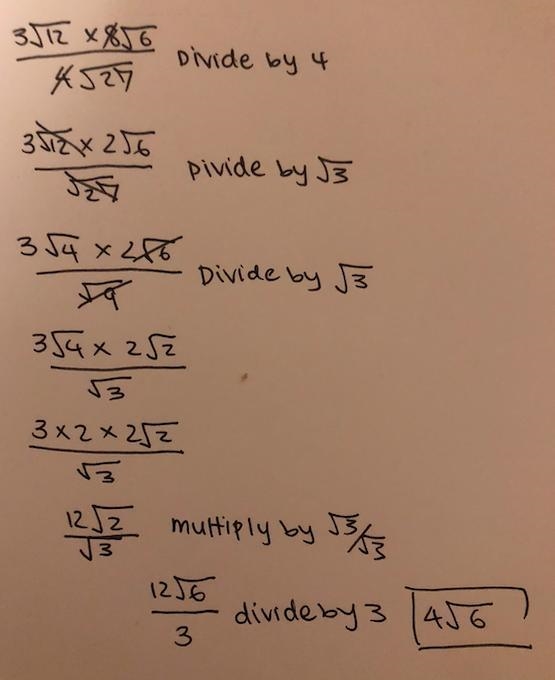 3√12 × 8√6 / 4√27 Divide by 4
3√12 × 2√6 / √27 Divide by √3
3√4 × 2√6 / √9 Divide by √3
3√4 × 2√2 / √3
3 × 2 × 2√2 / √3
12√2 / √3 multiply by √3/√3
12√6 / 3 divide by 3 4√6